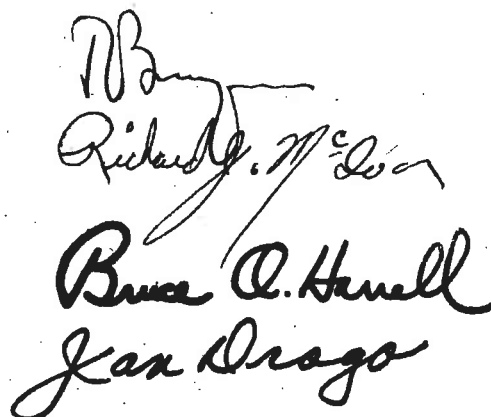 Richard J. McIvor
Bruce A. Harrell
Jean Drago